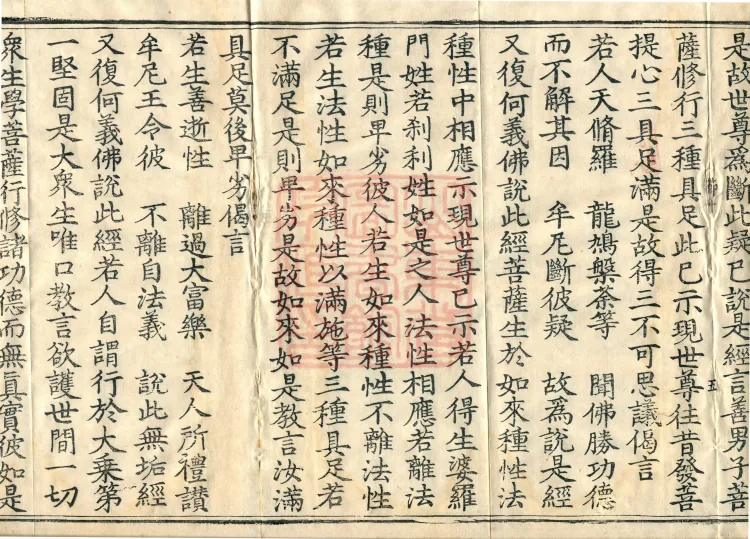 是故世尊為斷此疑已說是經言善男子菩
薩修行三種具足此已示現世尊往昔發菩
提心三具足滿是故得三不可思議偈言
若人天脩羅 龍鳩槃荼等 聞佛勝功德
而不解其因 牟尼斷彼疑 故為說是經
又復何義佛說此經菩薩生於如來種性法
種性中相應示現世尊已示若人得生婆羅
門姓若剎利姓如是之人法性相應若離法
種是則卑劣彼人若生如來種性不離法性
若生法性如來種性以滿施等三種具足若
不滿足是則卑劣是故如來如是教言汝滿
具足莫後卑劣偈言
若生善逝性 離過大富樂 天人所禮讚
牟尼王令彼 不離自法義 說此無垢經
又復何義佛說此經若人自謂行於大乘第
一堅固是大眾生唯口教言欲護世間一切
眾生學菩薩行修諸功德而無真實彼如是
五